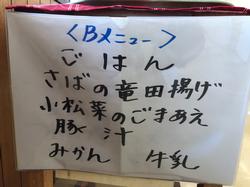 〈Bメニュー〉
ごはん
さばの竜田揚げ
小松菜のごまあえ
豚汁
みかん 牛乳